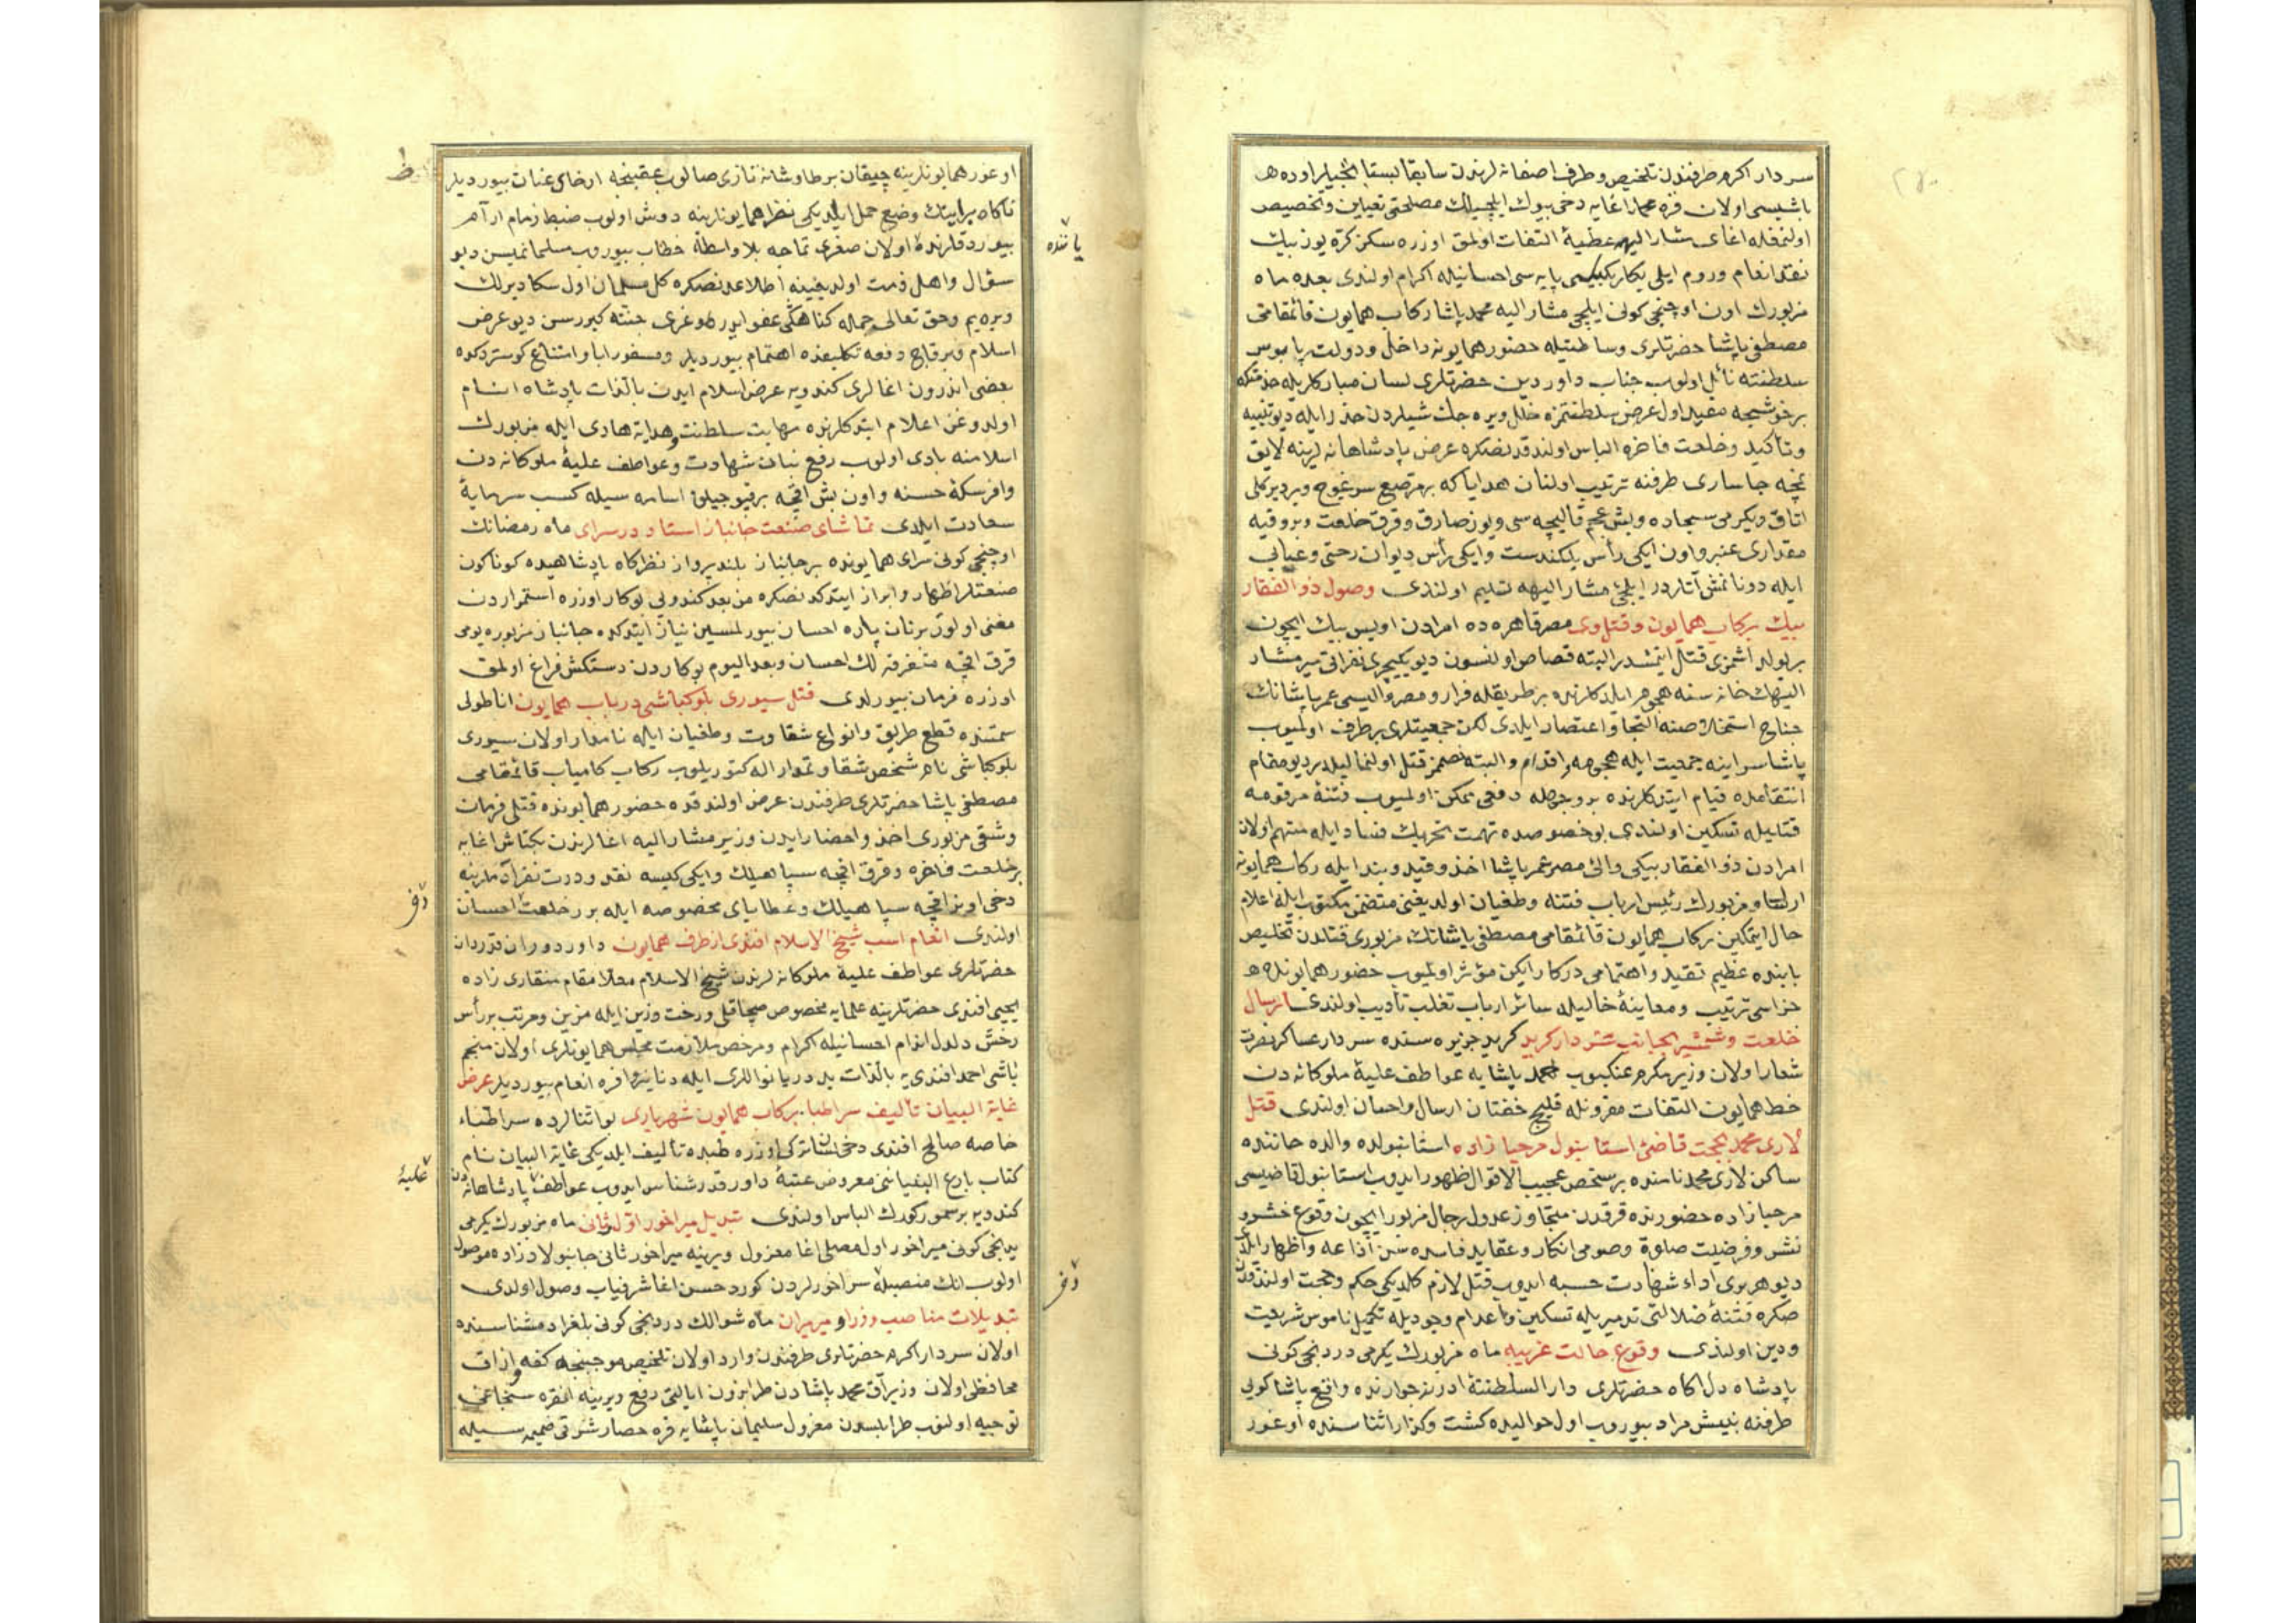 سردار اکرم طرفندن تلخیص و طرف اصفانه لرندن سابقا بستا نجیلر اوده
باشیسی اولان قره محمد اغایه دخی بیوك ایلچیلك مصلحتی تعیین و تخصیص
اولنمغله اغای مشار الیهه عطیهٔ التفات اولمق اوزره سکز کره یوز بیك
نقد انعام و روم ایلی بکلربکیسی پایه سی احسانیله اکرام اولندی بعده ماه
مزبورك اون اوچنجی کونی ایلچی مشار الیه محمد پاشا رکاب همایون قائمقامی
مصطفی پاشا حضرتلری وساطتیله حضور همایونه داخل و دولت پابوس
سلطنته نائل اولوب جناب داور دین حضرتلری لسان مبارکلریله خدمتکه
برخوشجه مقید اول عرض سلطنتمزه خلل ویره جك شیلردن حذر ایله دیو تنبیه
و تأکید و خلعت فاخره الباس اولندقدنصکره عرض پادشاهانه لرینه لایق
نمچه جاساری طرفنه ترتیب اولنان هدایا که بر مرصع سرغوج و بر دیرکلی
اتاق و یکرمی سجاده و بش عجم قالیچه سی و یوز صارق و قرق خلعت و بر وقیه
مقداری عنبر و اون ایکی رأس یلکندست و ایکی رأس دیوان رختی و عبایی
ایله دونانمش آتلردر ایلچئ مشار الیهه تسلیم اولندی وصول ذو الفقار
بیك برکاب همایون و قتل وی مصر قاهره ده امرادن اویس بیك ایچون
بر یولداشمزی قتل ایتمشدر البته قصاص اولنسون دیو یکیچری نفراتی میر مشار
الیهك خانه سنه هجوم ایلدکلرنده بر طریقله فرار و مصر والیسی عمر پاشانك
جناح استخلاصنه التجا و اعتصار ایلدی لکن جمعیتلری برطرف اولمیوب
پاشا سراینه جمعیت ایله هجومه اقدام و البته خصممز قتل اولنمالیدر دیو مقام
انتقامده قیام ایتدکلرنده بر وجهله دفعی ممکن اولمیوب فتنهٔ مرقومه
قتلیله تسکین اولندی بو خصوصده تهمت تحریك فساد ایله متهم اولان
امرادن ذو الفقار بیکی والئ مصر عمر پاشا اخذ و قید و بند ایله رکاب همایونه
ارسال و مزبورك رئیس ارباب فتنه و طغیان اولدیغنی متضمن مکتوب ایله اعلام
حال ایتمکین رکاب همایون قائمقامی مصطفی پاشانك مزبوری قتلدن تخلیص
بابنده عظیم تقید و اهتمامی درکار ایکن مؤثر اولمیوب حضور همایونده
جزاسی ترتیب و معاینهٔ حالیله سائر ارباب تغلب تأدیب اولندی ارسال
خلعت و شمشیر بجانب سردار کرید کرید جزیره سنده سردار عساکر نصرت
شعار اولان وزیر مکرم عنکبوب محمد پاشایه عواطف علیهٔ ملوکانه دن
خط همایون التفات مقرونله قلیج خفتان ارسال و احسان اولندی قتل
لاری محمد بحجت قاضئ استانبول مرحبا زاده استانبولده والده خاننده
ساکن لاری محمد نامنده بر شخص عجیب الاقوال ظهور ایدوب استانبول قاضیسی
مرحبا زاده حضورنده قرقدن متجاوز عدول رجال مزبور ایچون وقوع حشر و
نشر و فرضیت صلوة و صومی انکار و عقاید فاسده سن اذاعه و اظهار ایلدی
دیو هر بری اداء شهادت حسبه ایدوب قتل لازم کلدیکی حکم و حجت اولندقدن
صکره فتنهٔ ضلالتی تدمیریله تسکین و اعدام وجودیله تکمیل ناموس شریعت
و دین اولندی وقوع حالت غریبه ماه مزبورك یکرمی دردنجی کونی
پادشاه دل اکاه حضرتلری دار السلطنهٔ ادرنه جوارنده واقع پاشا کویی
طرفنه بنیش مراد بیوروب اول حوالیده کشت و کذار اثناسنده اوغور
اوغور همایونلرینه چیقان بر طاوشانه تازی صالوب عقبنجه ارخای عنان بیوردیلر
ناکاه برابینك وضع حمل ایلدیکی نظر همایونلرینه دوش اولوب ضبط زمام ارآم
بیوردقلرنده اولان صغری تماجه بلا واسطه خطاب بیوروب مسلمانمیسن دیو
سؤال و اهل ذمت اولدیغینه اطلاعدنصکره کل مسلمان اول سکا دیرلك
ویره یم و حق تعالی جمله کناهکی عفو ایدر طوغری جنته کیررسن دیو عرض
اسلام و بر قاچ دفعه تکلیفنده اهتمام بیوردیلر و مسفور ابا و امتناع کوستردکده
بعضی اندرون اغالری کندویه عرض اسلام ایدن بالذات پادشاه انام
اولدوغن اعلام ایتدکلرنده مهابت سلطنت و هدایة هادی ایله مزبورك
اسلامنه بادی اولوب رفع بنان شهادت و عواطف علیهٔ ملوکانه دن
وافر سکهٔ حسنه و اون بش اقچه بر قپوجیلق اسامه سیله کسب سرمایهٔ
سعادت ایلدی تماشای صنعت جانباز استاد در سرای ماه رمضانك
اوچنجی کونی سرای همایونده بر جانباز بلند پرواز نظرکاه پادشاهیده کوناکون
صنعتلر اظهار و ابراز ایتدکدنصکره من بعد کندویی بو کار اوزره استمراردن
مغنی اولور بر نان پاره احسان بیورلمسین نیاز ایتدکده جانباز مزبوره یومی
قرق اقچه متفرقه لك احسان و بعد الیوم بو کاردن دستکش فراغ اولمق
اوزره فرمان بیورلدی قتل سیوری بلوکباشی در باب همایون اناطولی
سمتنده قطع طریق و انواع شقاوت و طغیان ایله نامدار اولان سیوری
بلوکباشی نام شخص شقاوتمدار اله کتوریلوب رکاب کامیاب قائمقامی
مصطفی پاشا حضرتلری طرفندن عرض اولندقده حضور همایونده قتلی فرمان
و شقی مزبوری اخذ و احضار ایدن وزیر مشار الیه اغالرندن بکتاش اغایه
بر خلعت فاخره و قرق اقچه سپاهیلك و ایکی کیسه نقد و درت نفر آدملرینه
دخی اونر اقچه سپاهیلك و عطایای مخصوصه ایله برر خلعت احسان
اولندی انعام اسب شیخ الاسلام افندی از طرف همایون داور دوران قدردان
حضرتلری عواطف علیهٔ ملوکانه لرندن شیخ الاسلام معلا مقام منقاری زاده
یحیی افندی حضرتلرینه علمایه مخصوص صچاقلی و رخت و زین ایله مزین و مرتب بر رأس
رخش دلدل اندام احسانیله اکرام و مرخص ملازمت مجلس همایونلری اولان منجم
باشی احمد افندی یه بالذات ید دریا نواللری ایله دنانیر وافره انعام بیوردیلر عرض
غایة البیان تألیف سراطبا برکاب همایون شهریاری بو اثنالرده سراطباء
خاصه صالح افندی دخی لسان ترکی اوزره طبده تألیف ایلدیکی غایة البیان نام
کتاب بارع البنیاننی معروض عتبهٔ داور قدرشناس ایدوب عواطف پادشاهانه دن
کندویه بر سمور کورك الباس اولندی تبدیل میراخور اول و ثانی ماه مزبورك یکرمی
یدنجی کونی میراخور اول مصلی اغا معزول و یرینه میراخور ثانی جانبولاد زاده موصول
اولوب انك منصبیله سراخورلردن کورد حسن اغا شرفیاب وصول اولدی
تبدیلات مناصب وزرا و میرمیران ماه شوالك دردنجی کونی بلغراد مشتاسنده
اولان سردار اکرم حضرتلری طرفندن وارد اولان تلخیص موجبنجه کفه و ازاق
محافظی اولان وزیر آق محمد پاشادن طرابزون ایالتی رفع و یرینه انقره سنجاغی
توجیه اولنوب طرابلسدن معزول سلیمان پاشایه قره حصار شرقی ضمیمه سیله
یاننده
علیهٔ